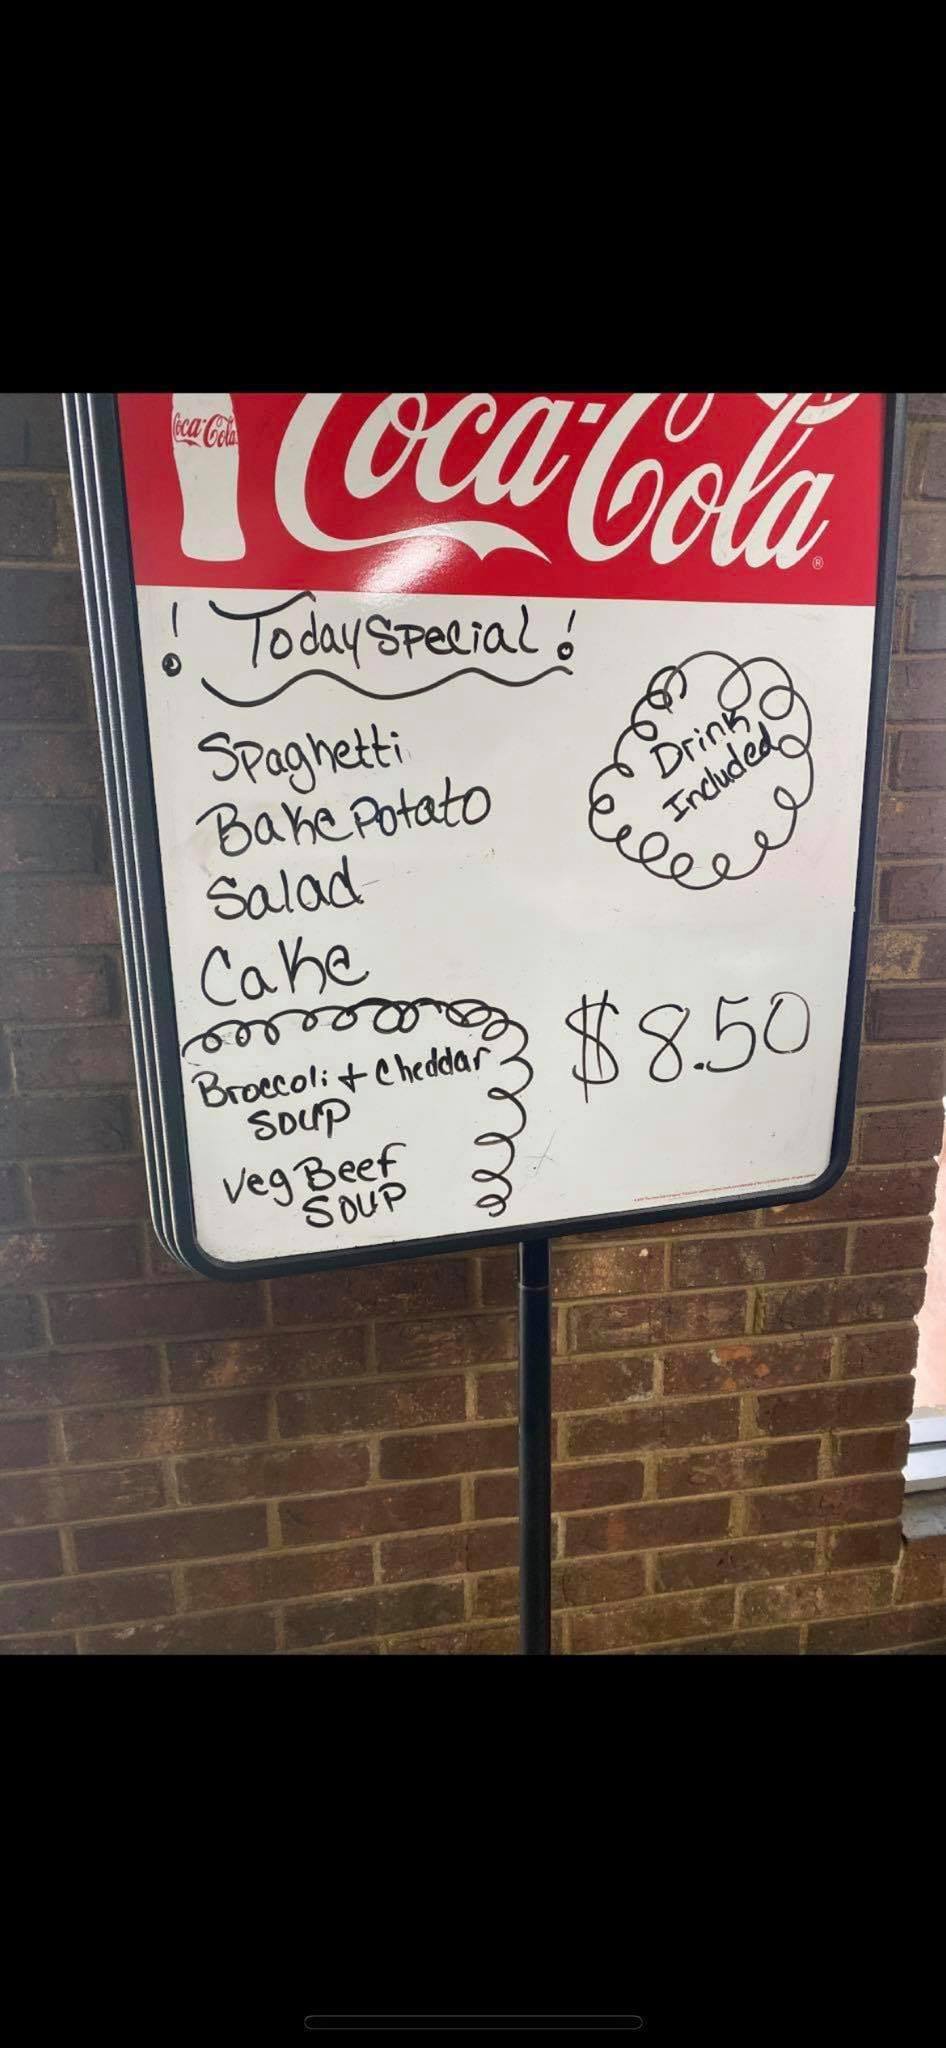 Coca-Cola
Coca-Cola®
! Today Special!
Spaghetti
Bake Potato
Salad
Cake
Drink
Included
$8.50
Broccoli + Cheddar
Soup
Veg Beef
Soup